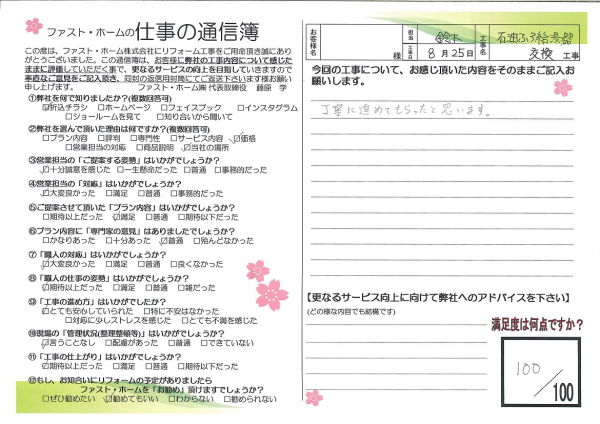 ファスト・ホームの仕事の通信簿
この度は、ファスト・ホーム株式会社にリフォーム工事をご用命頂き誠にあり
がとうございました。この通信簿は、お客様に弊社の工事内容について感じた
ままに評価していただく事で、更なるサービスの向上を目指していきますので
率直なご意見をご記入頂き、同封の返信用封筒にてご返送下さいます様お願い
申し上げます。 ファスト・ホーム㈱ 代表取締役 藤原 学
①弊社を何で知りましたか?(複数回答可)
☑折込チラシ □ホームページ □フェイスブック □インスタグラム
□ショールームを見て □知り合いから聞いて
②弊社を選んで頂いた理由は何ですか?(複数回答可)
□プラン内容 □評判 □専門性 □サービス内容 ☑価格
□営業担当の対応 □商品説明 ☑当社の場所
③営業担当の「ご提案する姿勢」はいかがでしょうか?
☑十分誠意を感じた □一生懸命だった □普通 □事務的だった
④営業担当の「対応」はいかがでしょうか?
☑大変良かった □満足 □普通 □事務的だった
⑤ご提案させて頂いた「プラン内容」はいかがでしょうか?
□期待以上だった ☑満足 □普通 □期待以下だった
⑥プラン内容に「専門家の意見」はありましたでしょうか?
□かなりあった □十分あった ☑普通 □殆んどなかった
⑦「職人の対応」はいかがでしょうか?
☑大変良かった □満足 □普通 □良くなかった
⑧「職人の仕事の姿勢」はいかがでしょうか?
☑期待以上だった □満足 □普通 □雑だった
⑨「工事の進め方」はいかがでしょうか?
☑とても安心していられた □特に不安はなかった
□対応に少しストレスを感じた □とても不満を感じた
⑩現場の「管理状況(整理整頓等)」はいかがでしょうか?
☑言うことなし □配慮があった □普通 □できていない
⑪「工事の仕上がり」はいかがでしょうか?
☑期待以上だった □満足 □普通 □期待以下だった
⑫もし、お知合いにリフォームの予定がありましたら
ファスト・ホームを「お勧め」頂けますでしょうか?
□ぜひ勧めたい ☑勧めてもいい □わからない □勧められない
お客様名 様
担当 鈴木
工事日 8月25日
工事名 石油ふろ給湯器
交換 工事
今回の工事について、お感じ頂いた内容をそのままご記入お
願いします。
丁寧に進めてもらったと思います。
【更なるサービス向上に向けて弊社へのアドバイスを下さい】
(どの様な内容でも結構です)
満足度は何点ですか?
100/100